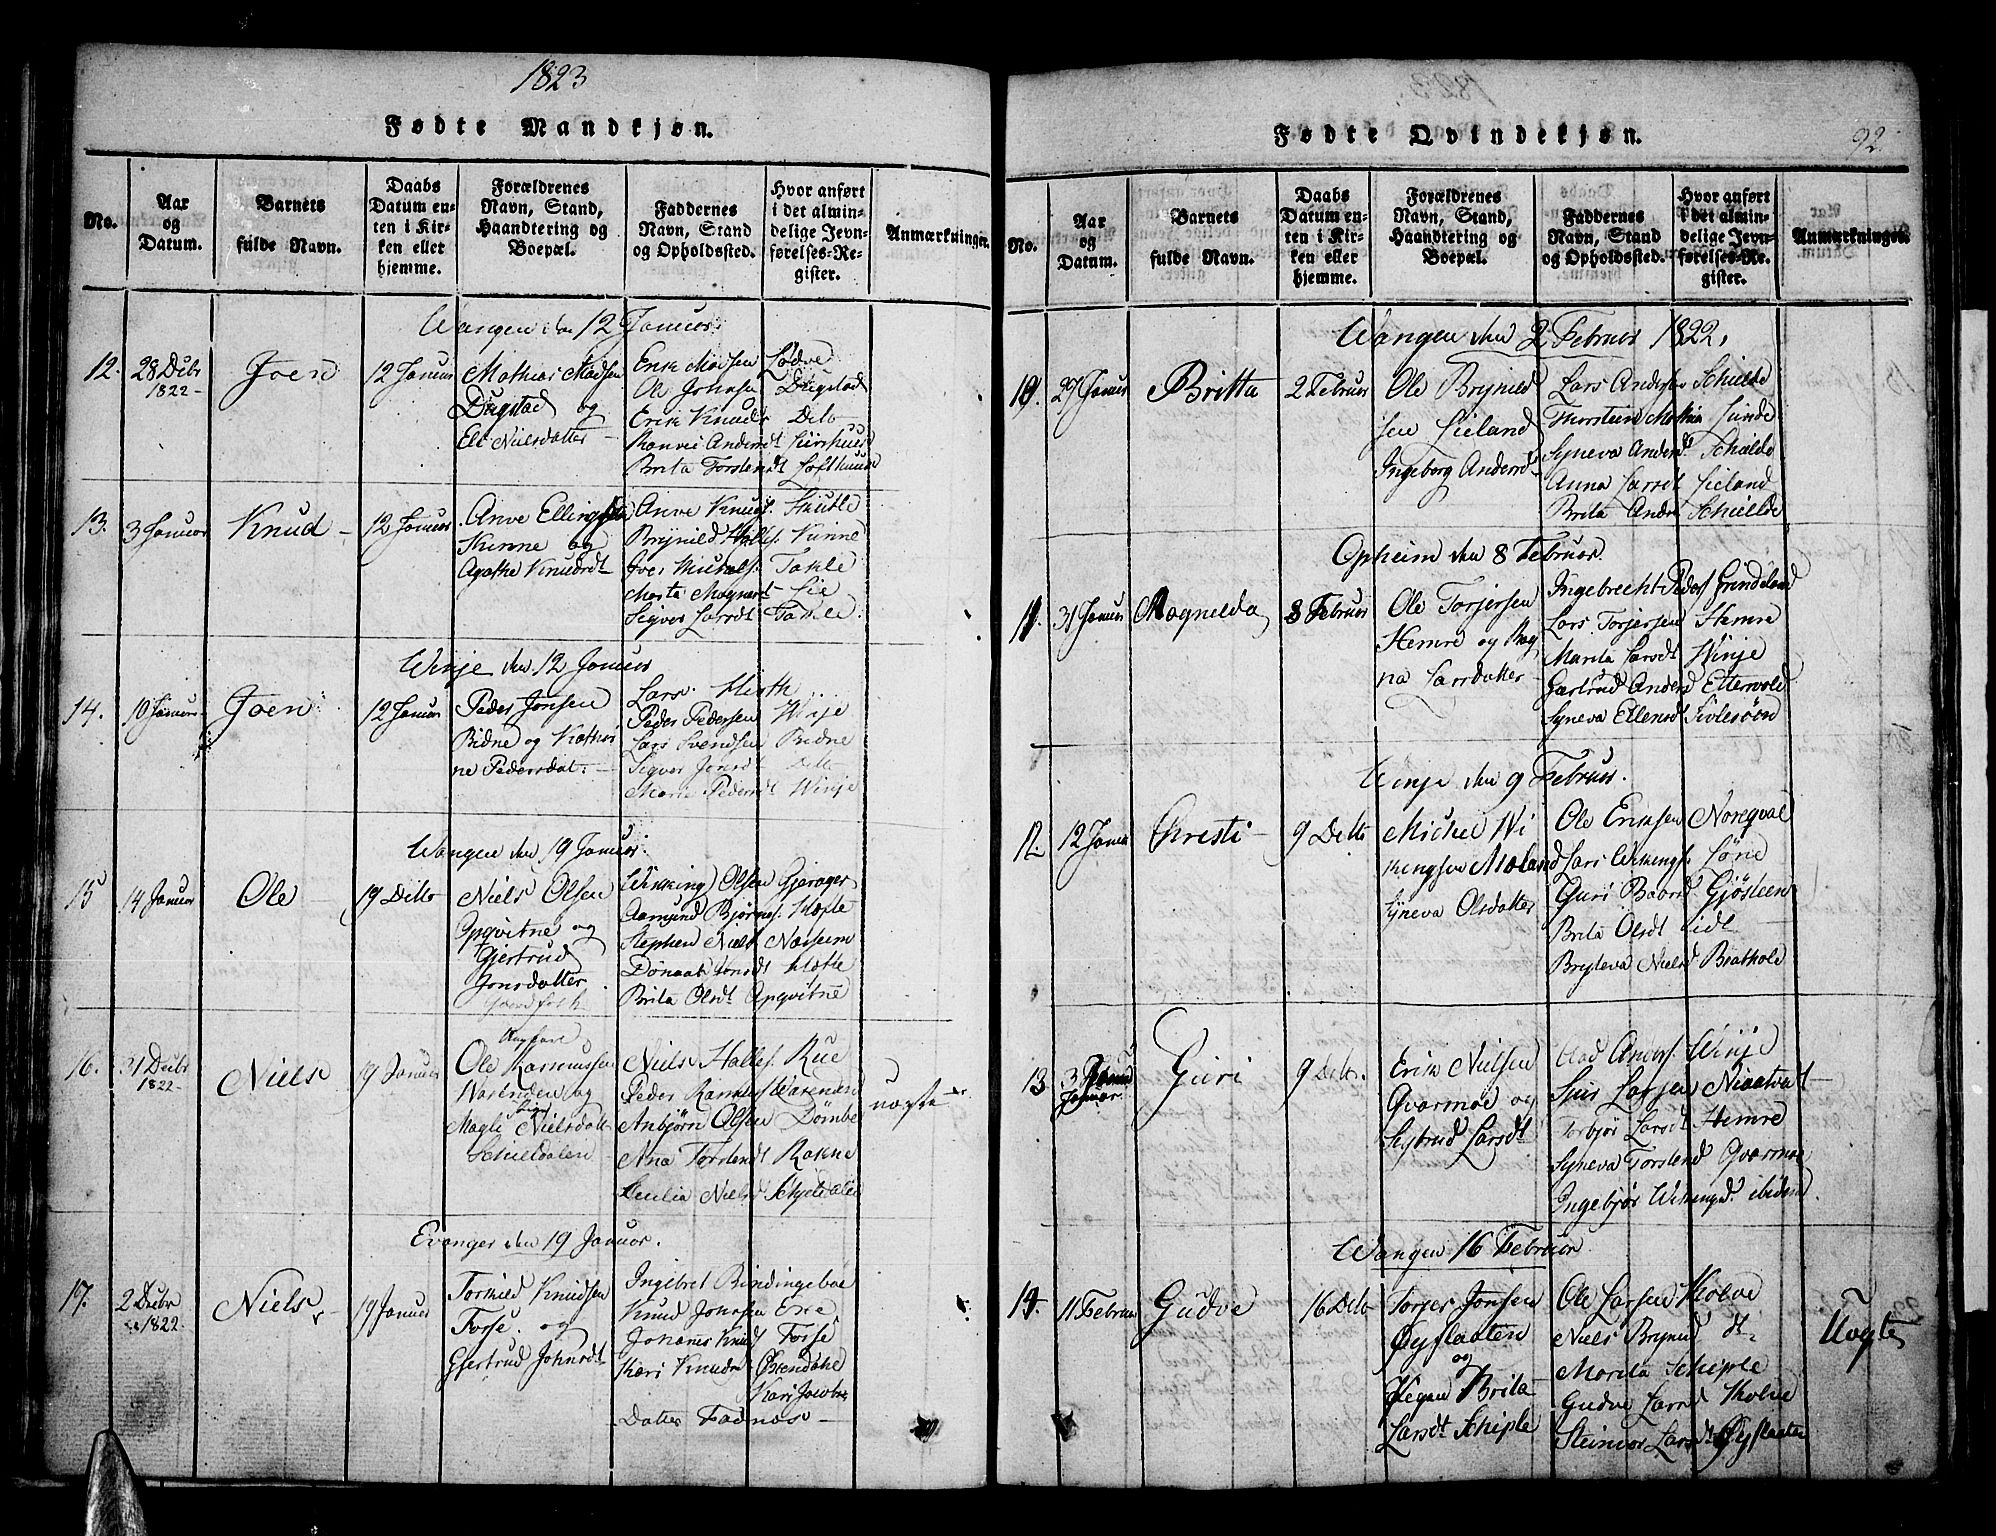 1823
Fødte Mandkjøn.
No.
Aar
og
Datum.
Barnets
fulde Navn.
Daabs
Datum en-
ten i Kir-
ken ellet
hjemme.
Forældrenes
Navn, Stand,
Haandtering og
Boepæl.
Faddernes
Navn, Stand
og Opholdssted.
Hvor anført
i det almin-
delige Jevn-
førelses-Re-
gister.
Anmærkninger.
Wangen den 12 Januar
12. 28 Decbr
1822
Joen
12 Januar
Mathias Madsen
Dugstad og
Eli Nielsdatter
Erik Madsen Lødve
Ole Johnsen Dugstad
Erik Knuds Dito
Ranvei Andersdt
Brita Torstendt Lofthuus
13. 3 Januar
Knud
12 Januar
Anve Ellingsen
Kinne og
Agathe Knudsdt
Anve Knuds. Skutle
Brynild Halles. Kinne
Iver Michaels. Takle
Marta Magnesdt Lie
Sigver Larsdt Takle
Winje den 12 Januar
14. 10 Januar
Joen
12 Januar
Peder Jonsen
Ridne og Kathri
ne Pedersdat:
Lars Hirth
Peder Pedersen Winje
Lars Svendsen Ridne
Sigver Jonsdt Dito
Marie Pedersdt Winje
Wangen den 19 Januar
15 14 Januar
Ole
19 Ditto
Niels Olsen
Opqvitne og
Gjertrud
Jonsdatter
Wikking Olsen Gjerager
Aamund Bjørnes. Mæhle
Stephen Niels Næsheim
Brita Olsdt Opqvitne
16. 31 Decbr
1822
Niels
19 Januar
Ole Rasmussen
og
Magli Nielsdatt
Schieldalen
Niels Halles. Rue
Peder
Anbjørn Olsen Dømbe
Ana Torstendt Rokne
Cecilia Nielsd Schjeldalen
uægte
Evanger den 19 Januar.
17. 2 Decbr
1822
Niels
19 Januar
Tormod Knudsen
Forse og
Gjertrud Johnsdt
Ingebret Bindingeboe
Knud Johnsen Ere
Johannes Knud Forse
Kari Knudsd Øvendahl
Kari Jacobs
Datter Fadnæs
Fødte Qvindekjøn.
92
No.
Aar
og
Datum.
Barnets
fulde Navn.
Daabs
Datum en-
ten i Kir-
ken eller
hjemme.
Forældrenes
Navn, Stand,
Haandtering og
Boepæl.
Faddernes
Navn, Stand
og Opholdssted.
Hvor anført
i det almin-
delige Jevn-
førelses-Re-
gister.
Anmærkninger.
Wangen den 2 Februar 1822.
10. 27 Januar
Britta
2 Februar
Ole Brynild
sen Lieland
Ingeborg Andersd
Lars Anders Schielde
Thorstein Mathia Lunde
Syneva Andersd Schielde
Anna Larsdt Lieland
Brita Anders Schielde
Opheim den 8 Februar.
11. 31 Januar
Magnilda
8 Februar
Ole Torjersen
Hemre og Rag
na Larsdatter
Ingebrecht Peders Grindeland
Lars Torjersen Hemre
Marita Larsdt Winje
Gjertrud Andersd Ettervold
Syneva Ellensdt
Winje den 9 Februar.
12. 12 Janua
Christi
9 Ditto
Michel Wi
kingsen Moland
Syneva Olsdatter
Ole Eriksen Noreqval
Lars Wikings Lønne
Guri Baard Gjøsteen
Brita Olsdt Lidt
Bryteva Nielsd Brathole
13
Januar.
Guri
9 Ditto
Erik Nielsen
Qvarmoe og
Gjertrud Larsdt
Anders. Winje
Sjur Larsen
Torbjør Larsdt Hemre
Syneva Torstend Qvarmoe
Ingebjør Wikingsd ibidem
Wangen 16 Februar
14. 11 Februar
Gudve
16 Dito
Torjer Jonsen
Øyflaaten
og
Brita
Larsdt Schiple
Ole Larsen Kolve
Niels Brynild dt
Marita Schiple
Gudve Larsd Kolve
Steinvor Larsdt Øyflaaten
Uægte